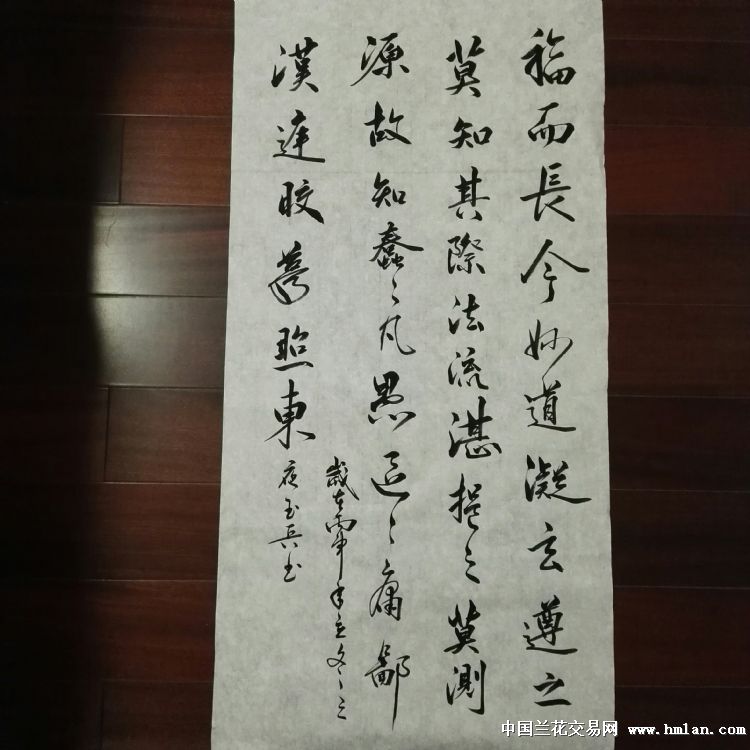 福而長今妙道凝玄遵之
莫知其際法流湛挹之莫測
源故知蠢々凡愚區々庸鄙
漢庭皎夢照東
歲在丙申年立冬之
夜玉兵书
中国兰花交易网 www.hmlan.com